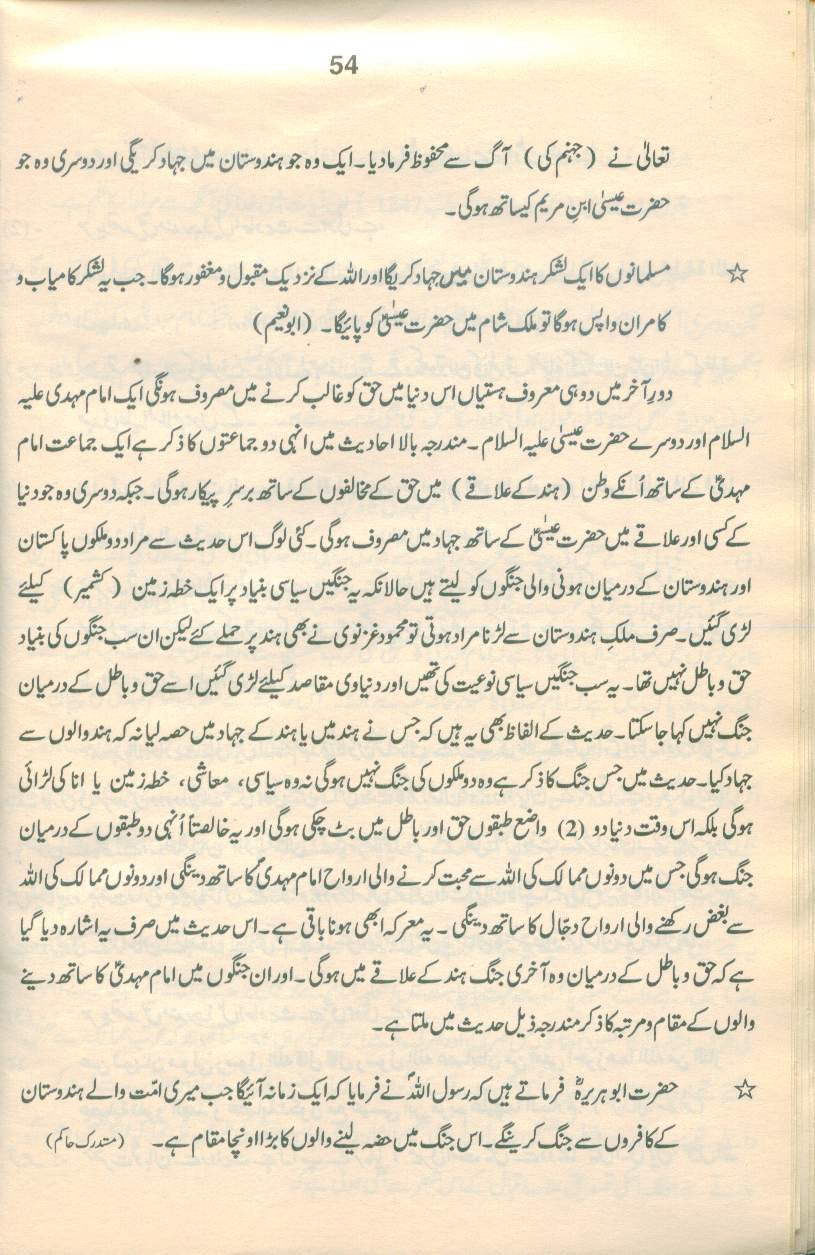 54
تعالیٰ نے (جہنم کی) آگ سے محفوظ فرما دیا۔ ایک وہ جو ہندوستان میں جہاد کریگی اور دوسری وہ جو
حضرت عیسیٰ ابنِ مریم کیساتھ ہوگی۔
☆ مسلمانوں کا ایک لشکر ہندوستان میں جہاد کریگا اور اللہ کے نزدیک مقبول و مغفور ہوگا۔ جب یہ لشکر کامیاب و
کامران واپس ہوگا تو ملک شام میں حضرت عیسیٰؑ کو پائیگا۔ (ابو نعیم)
دورِ آخر میں دو ہی معروف ہستیاں اس دنیا میں حق کو غالب کرنے میں مصروف ہونگی ایک امام مہدی علیہ
السلام اور دوسرے حضرت عیسیٰ علیہ السلام۔ مندرجہ بالا احادیث میں انہی دو جماعتوں کا ذکر ہے ایک جماعت امام
مہدیؑ کے ساتھ اُنکے وطن (ہند کے علاقے) میں حق کے مخالفوں کے ساتھ برسرِ پیکار ہوگی۔ جبکہ دوسری وہ جو دنیا
کے کسی اور علاقے میں حضرت عیسیٰؑ کے ساتھ جہاد میں مصروف ہوگی۔ کئی لوگ اس حدیث سے مراد دو ملکوں پاکستان
اور ہندوستان کے درمیان ہونی والی جنگوں کو لیتے ہیں حالانکہ یہ جنگیں سیاسی بنیاد پر ایک خطہ زمین (کشمیر) کیلئے
لڑی گئیں۔ صرف ملکِ ہندوستان سے لڑنا مراد ہوتی تو محمود غزنوی نے بھی ہند پر حملے کئے لیکن ان سب جنگوں کی بنیاد
حق و باطل نہیں تھا۔ یہ سب جنگیں سیاسی نوعیت کی تھیں اور دنیاوی مقاصد کیلئے لڑی گئیں اسے حق و باطل کے درمیان
جنگ نہیں کہا جا سکتا۔ حدیث کے الفاظ بھی یہ ہیں کہ جس نے ہند میں یا ہند کے جہاد میں حصہ لیا نہ کہ ہند والوں سے
جہاد کیا۔ حدیث میں جس جنگ کا ذکر ہے وہ دو ملکوں کی جنگ نہیں ہوگی نہ وہ سیاسی، معاشی، خطہ زمین یا انا کی لڑائی
ہوگی بلکہ اس وقت دنیا دو (2) واضع طبقوں حق اور باطل میں بٹ چکی ہوگی اور یہ خالصتاً اُنہی دو طبقوں کے درمیان
جنگ ہوگی جس میں دونوں ممالک کی اللہ سے محبت کرنے والی ارواح امام مہدیؑ کا ساتھ دینگی اور دونوں ممالک کی اللہ
سے بغض رکھنے والی ارواح دجّال کا ساتھ دینگی۔ یہ معرکہ ابھی ہونا باقی ہے۔ اس حدیث میں صرف یہ اشارہ دیا گیا
ہے کہ حق و باطل کے درمیان وہ آخری جنگ ہند کے علاقے میں ہوگی۔ اور ان جنگوں میں امام مہدیؑ کا ساتھ دینے
والوں کے مقام و مرتبہ کا ذکر مندرجہ ذیل حدیث میں ملتا ہے۔
☆ حضرت ابو ہریرہؓ فرماتے ہیں کہ رسول اللہؐ نے فرمایا کہ ایک زمانہ آئیگا جب میری امّت والے ہندوستان
کے کافروں سے جنگ کرینگے۔ اس جنگ میں حضہ لینے والوں کا بڑا اونچا مقام ہے۔ (متدرک حاکم)